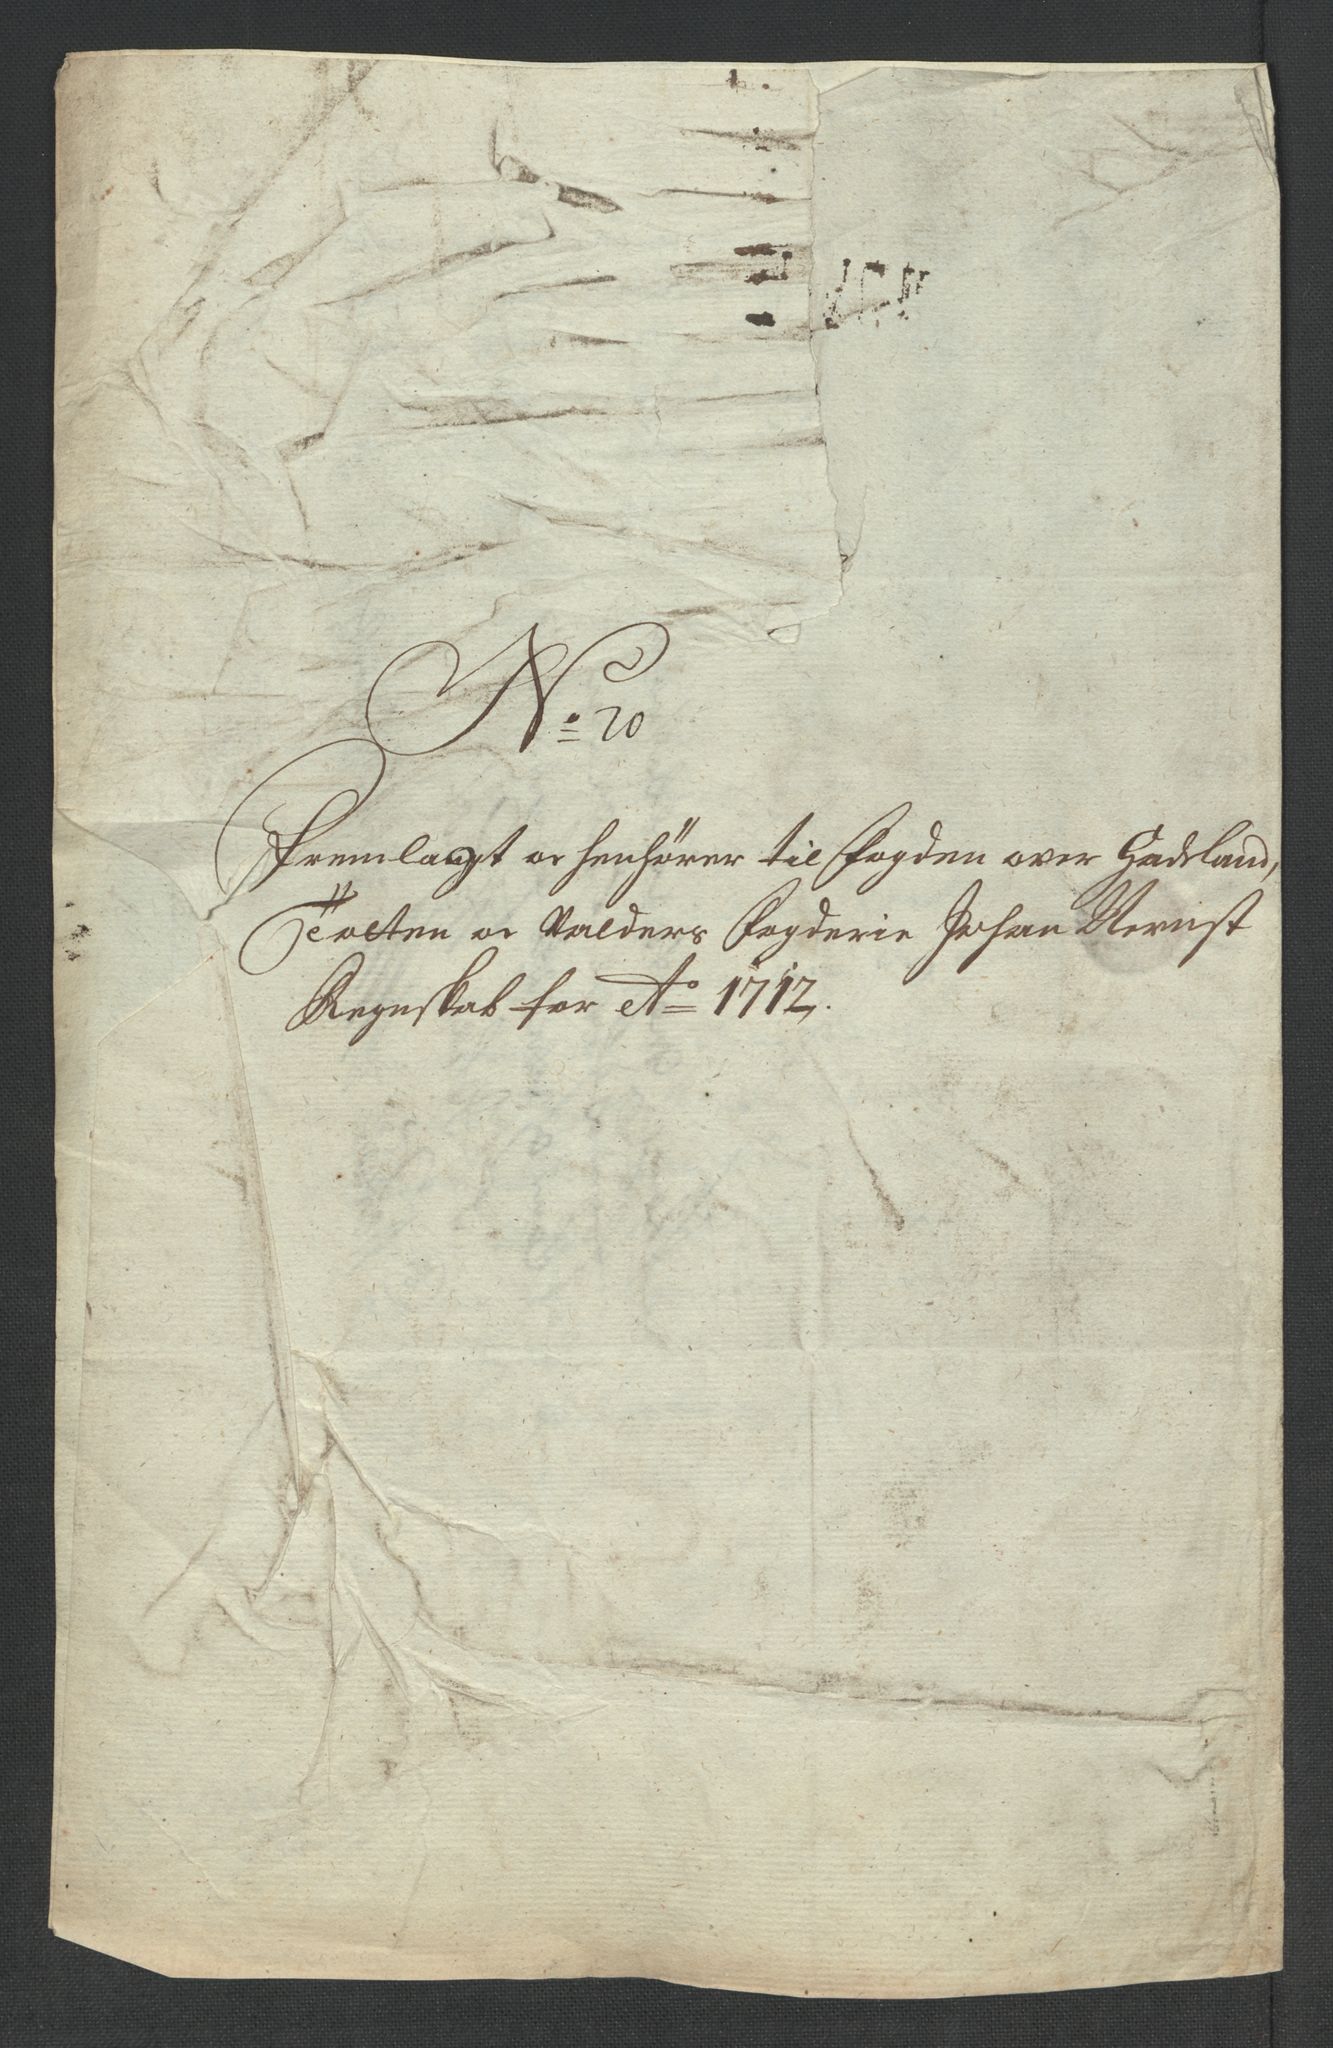 No 20
Fremlagt oc henhörer til Fogden over Hadeland,
Tolten oc Valders Fogderie Johan Wernst
Regnskab for Ao 1712.